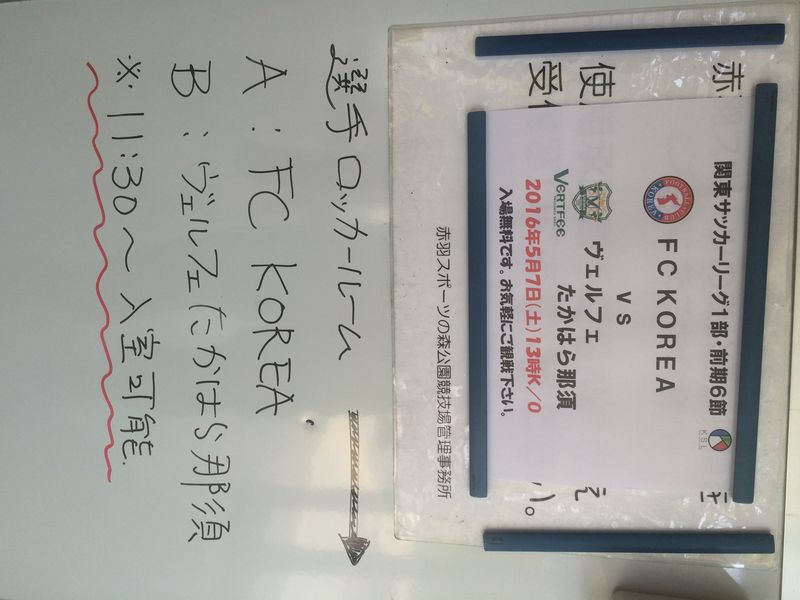 赤
使
受
関東サッカーリーグ1部・前期6節
KSL
FOOTBALL CLUB KOREA
FC KOREA
vs
VERTFEE
ヴェルフェ
たかはら那須
2016年5月7日(土)13時K/O
入場無料です。お気軽にご観戦下さい。
え
)。
赤羽スポーツの森公園競技場管理事務所
選手ロッカールーム
A:FC KOREA
B:ヴェルフェたかはら那須
※11:30〜入室可能.